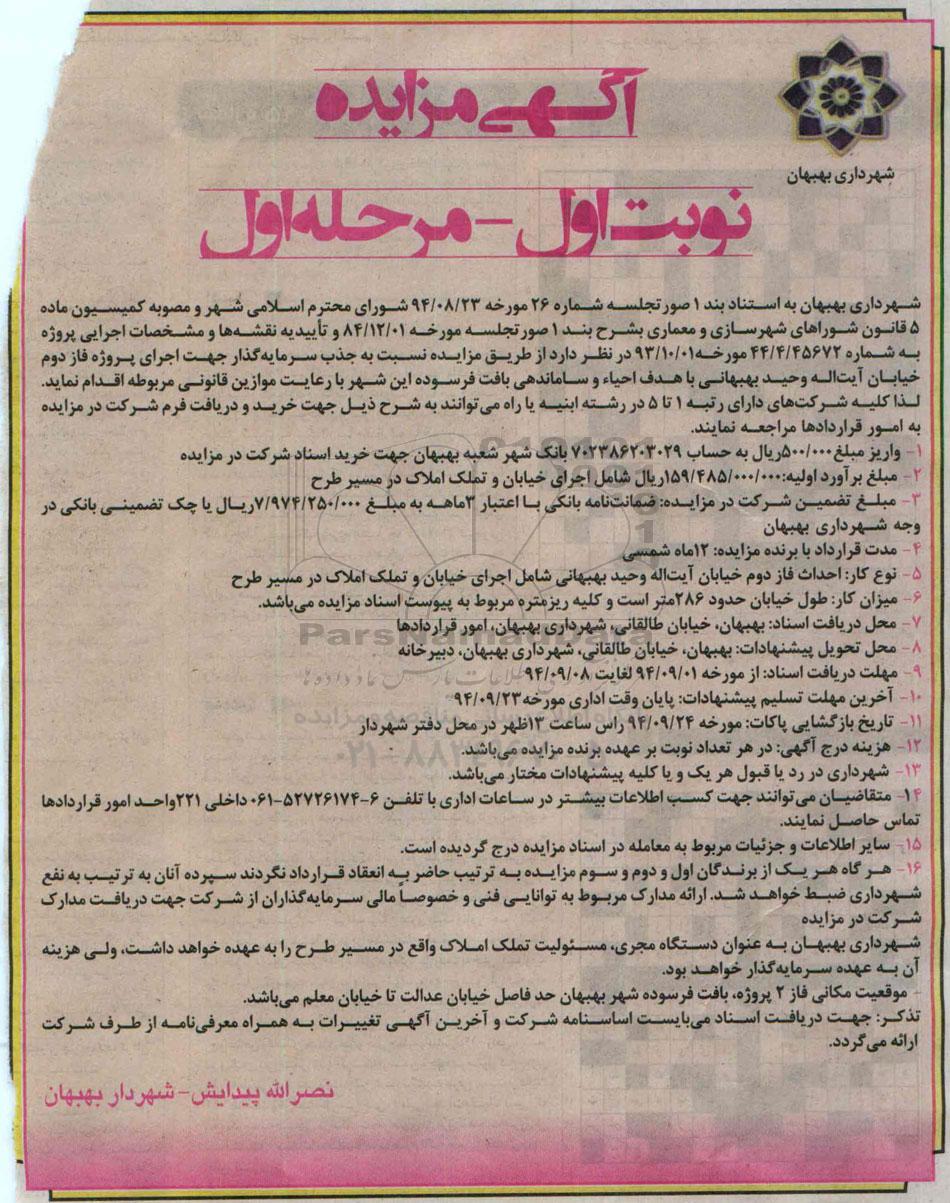 شهرداری بهبهان
آگهی مزایده
نوبت اول - مرحله اول
شهرداری بهبهان به استناد بند ۱ صورتجلسه شماره ۲۶ مورخه ۹۴/۰۸/۲۳ شورای محترم اسلامی شهر و مصوبه کمیسیون ماده
۵ قانون شوراهای شهرسازی و معماری بشرح بند ۱ صورتجلسه مورخه ۸۴/۱۲/۰۱ و تأییدیه نقشه‌ها و مشخصات اجرایی پروژه
به شماره ۴۴/۴/۴۵۶۷۲ مورخه ۹۳/۱۰/۰۱ در نظر دارد از طریق مزایده نسبت به جذب سرمایه‌گذار جهت اجرای پروژه فاز دوم
خیابان آیت‌اله وحید بهبهانی با هدف احیاء و ساماندهی بافت فرسوده این شهر با رعایت موازین قانونی مربوطه اقدام نماید.
لذا کلیه شرکت‌های دارای رتبه ۱ تا ۵ در رشته ابنیه یا راه می‌توانند به شرح ذیل جهت خرید و دریافت فرم شرکت در مزایده
به امور قراردادها مراجعه نمایند.
۱- واریز مبلغ ۵۰۰/۰۰۰ریال به حساب ۷۰۲۳۸۶۲۰۳۰۲۹ بانک شهر شعبه بهبهان جهت خرید اسناد شرکت در مزایده
۲- مبلغ برآورد اولیه: ۱۵۹/۴۸۵/۰۰۰/۰۰۰ریال شامل اجرای خیابان و تملک املاک در مسیر طرح
۳- مبلغ تضمین شرکت در مزایده: ضمانت‌نامه بانکی با اعتبار ۳ماهه به مبلغ ۷/۹۷۴/۲۵۰/۰۰۰ریال یا چک تضمینی بانکی در
وجه شهرداری بهبهان
۴- مدت قرارداد با برنده مزایده: ۱۲ماه شمسی
۵- نوع کار: احداث فاز دوم خیابان آیت‌اله وحید بهبهانی شامل اجرای خیابان و تملک املاک در مسیر طرح
۶- میزان کار: طول خیابان حدود ۲۸۶متر است و کلیه ریزمتره مربوط به پیوست اسناد مزایده می‌باشد.
۷- محل دریافت اسناد: بهبهان، خیابان طالقانی، شهرداری بهبهان، امور قراردادها
۸- محل تحویل پیشنهادات: بهبهان، خیابان طالقانی، شهرداری بهبهان، دبیرخانه
۹- مهلت دریافت اسناد: از مورخه ۹۴/۰۹/۰۱ لغایت ۹۴/۰۹/۰۸
۱۰- آخرین مهلت تسلیم پیشنهادات: پایان وقت اداری مورخه ۹۴/۰۹/۲۳
۱۱- تاریخ بازگشایی پاکات: مورخه ۹۴/۰۹/۲۴ راس ساعت ۱۳ظهر در محل دفتر شهردار
۱۲- هزینه درج آگهی: در هر تعداد نوبت بر عهده برنده مزایده می‌باشد.
۱۳- شهرداری در رد یا قبول هر یک و یا کلیه پیشنهادات مختار می‌باشد.
۱۴- متقاضیان می‌توانند جهت کسب اطلاعات بیشتر در ساعات اداری با تلفن ۶-۵۲۷۲۶۱۷۴-۰۶۱ داخلی ۲۲۱واحد امور قراردادها
تماس حاصل نمایند.
۱۵- سایر اطلاعات و جزئیات مربوط به معامله در اسناد مزایده درج گردیده است.
۱۶- هر گاه هر یک از برندگان اول و دوم و سوم مزایده به ترتیب حاضر به انعقاد قرارداد نگردند سپرده آنان به ترتیب به نفع
شهرداری ضبط خواهد شد. ارائه مدارک مربوط به توانایی فنی و خصوصاً مالی سرمایه‌گذاران از شرکت جهت دریافت مدارک
شرکت در مزایده
شهرداری بهبهان به عنوان دستگاه مجری، مسئولیت تملک املاک واقع در مسیر طرح را به عهده خواهد داشت، ولی هزینه
آن به عهده سرمایه‌گذار خواهد بود.
- موقعیت مکانی فاز ۲ پروژه، بافت فرسوده شهر بهبهان حد فاصل خیابان عدالت تا خیابان معلم می‌باشد.
تذکر: جهت دریافت اسناد می‌بایست اساسنامه شرکت و آخرین آگهی تغییرات به همراه معرفی‌نامه از طرف شرکت
ارائه می‌گردد.
نصرالله پیدایش - شهردار بهبهان
ParsNamadData